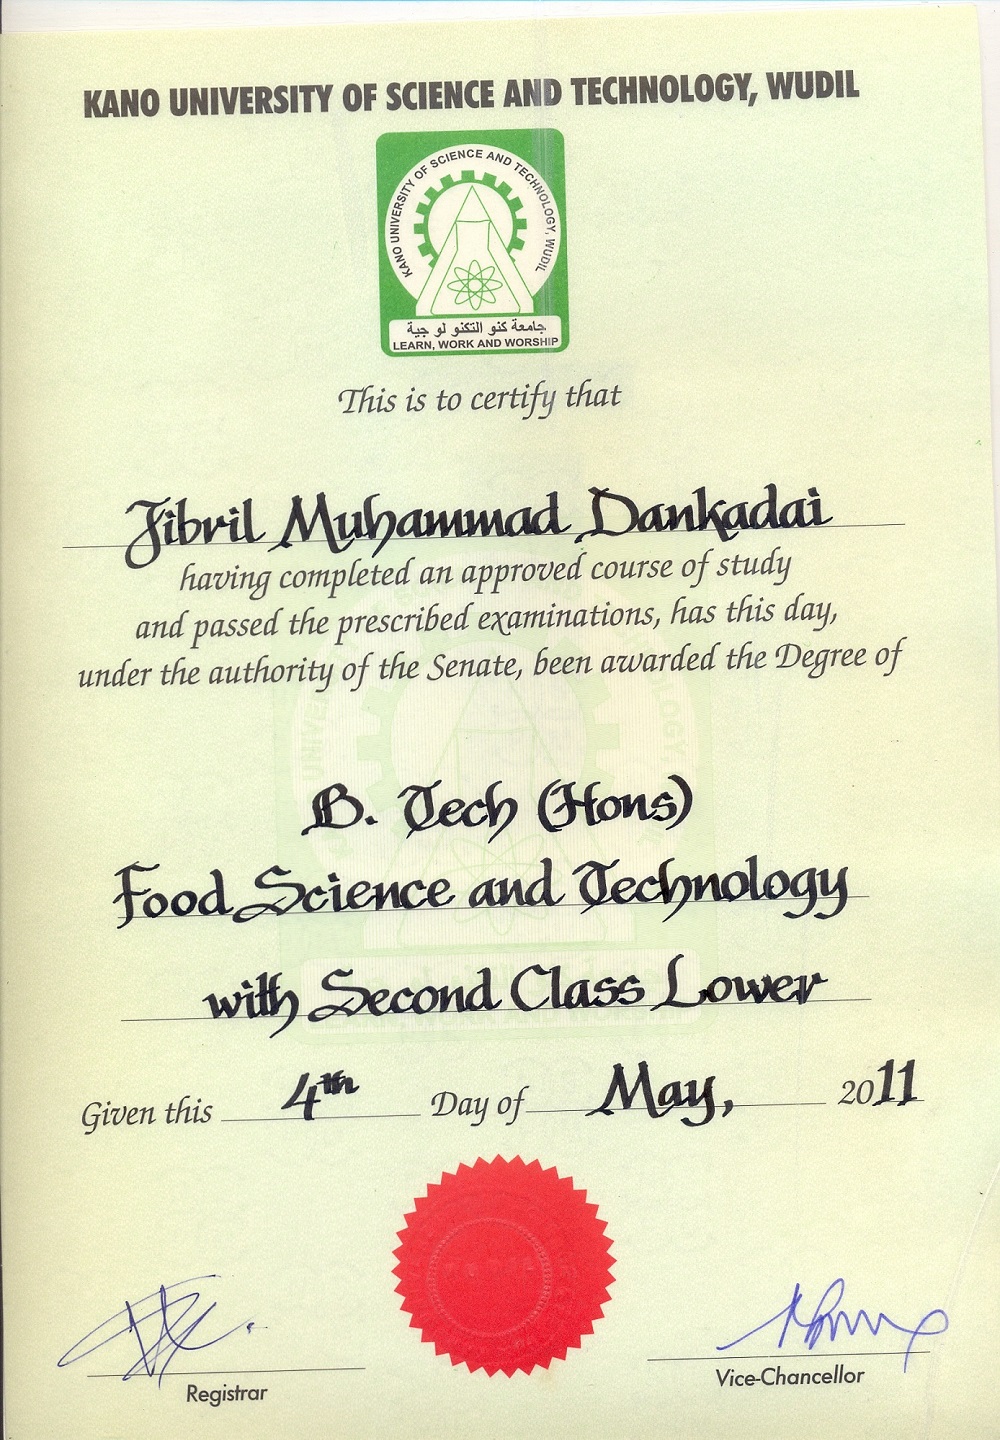 KANO UNIVERSITY OF SCIENCE AND TECHNOLOGY, WUDIL
KANO UNIVERSITY OF SCIENCE AND TECHNOLOGY, WUDIL
جامعة كنو التكنو لو جية
LEARN, WORK AND WORSHIP
This is to certify that
Jibril Muhammad Dankadai
having completed an approved course of study
and passed the prescribed examinations, has this day,
under the authority of the Senate, been awarded the Degree of
B. Tech (Hons)
Food Science and Technology
with Second Class Lower
Given this 4th Day of May, 2011
Registrar
Vice-Chancellor